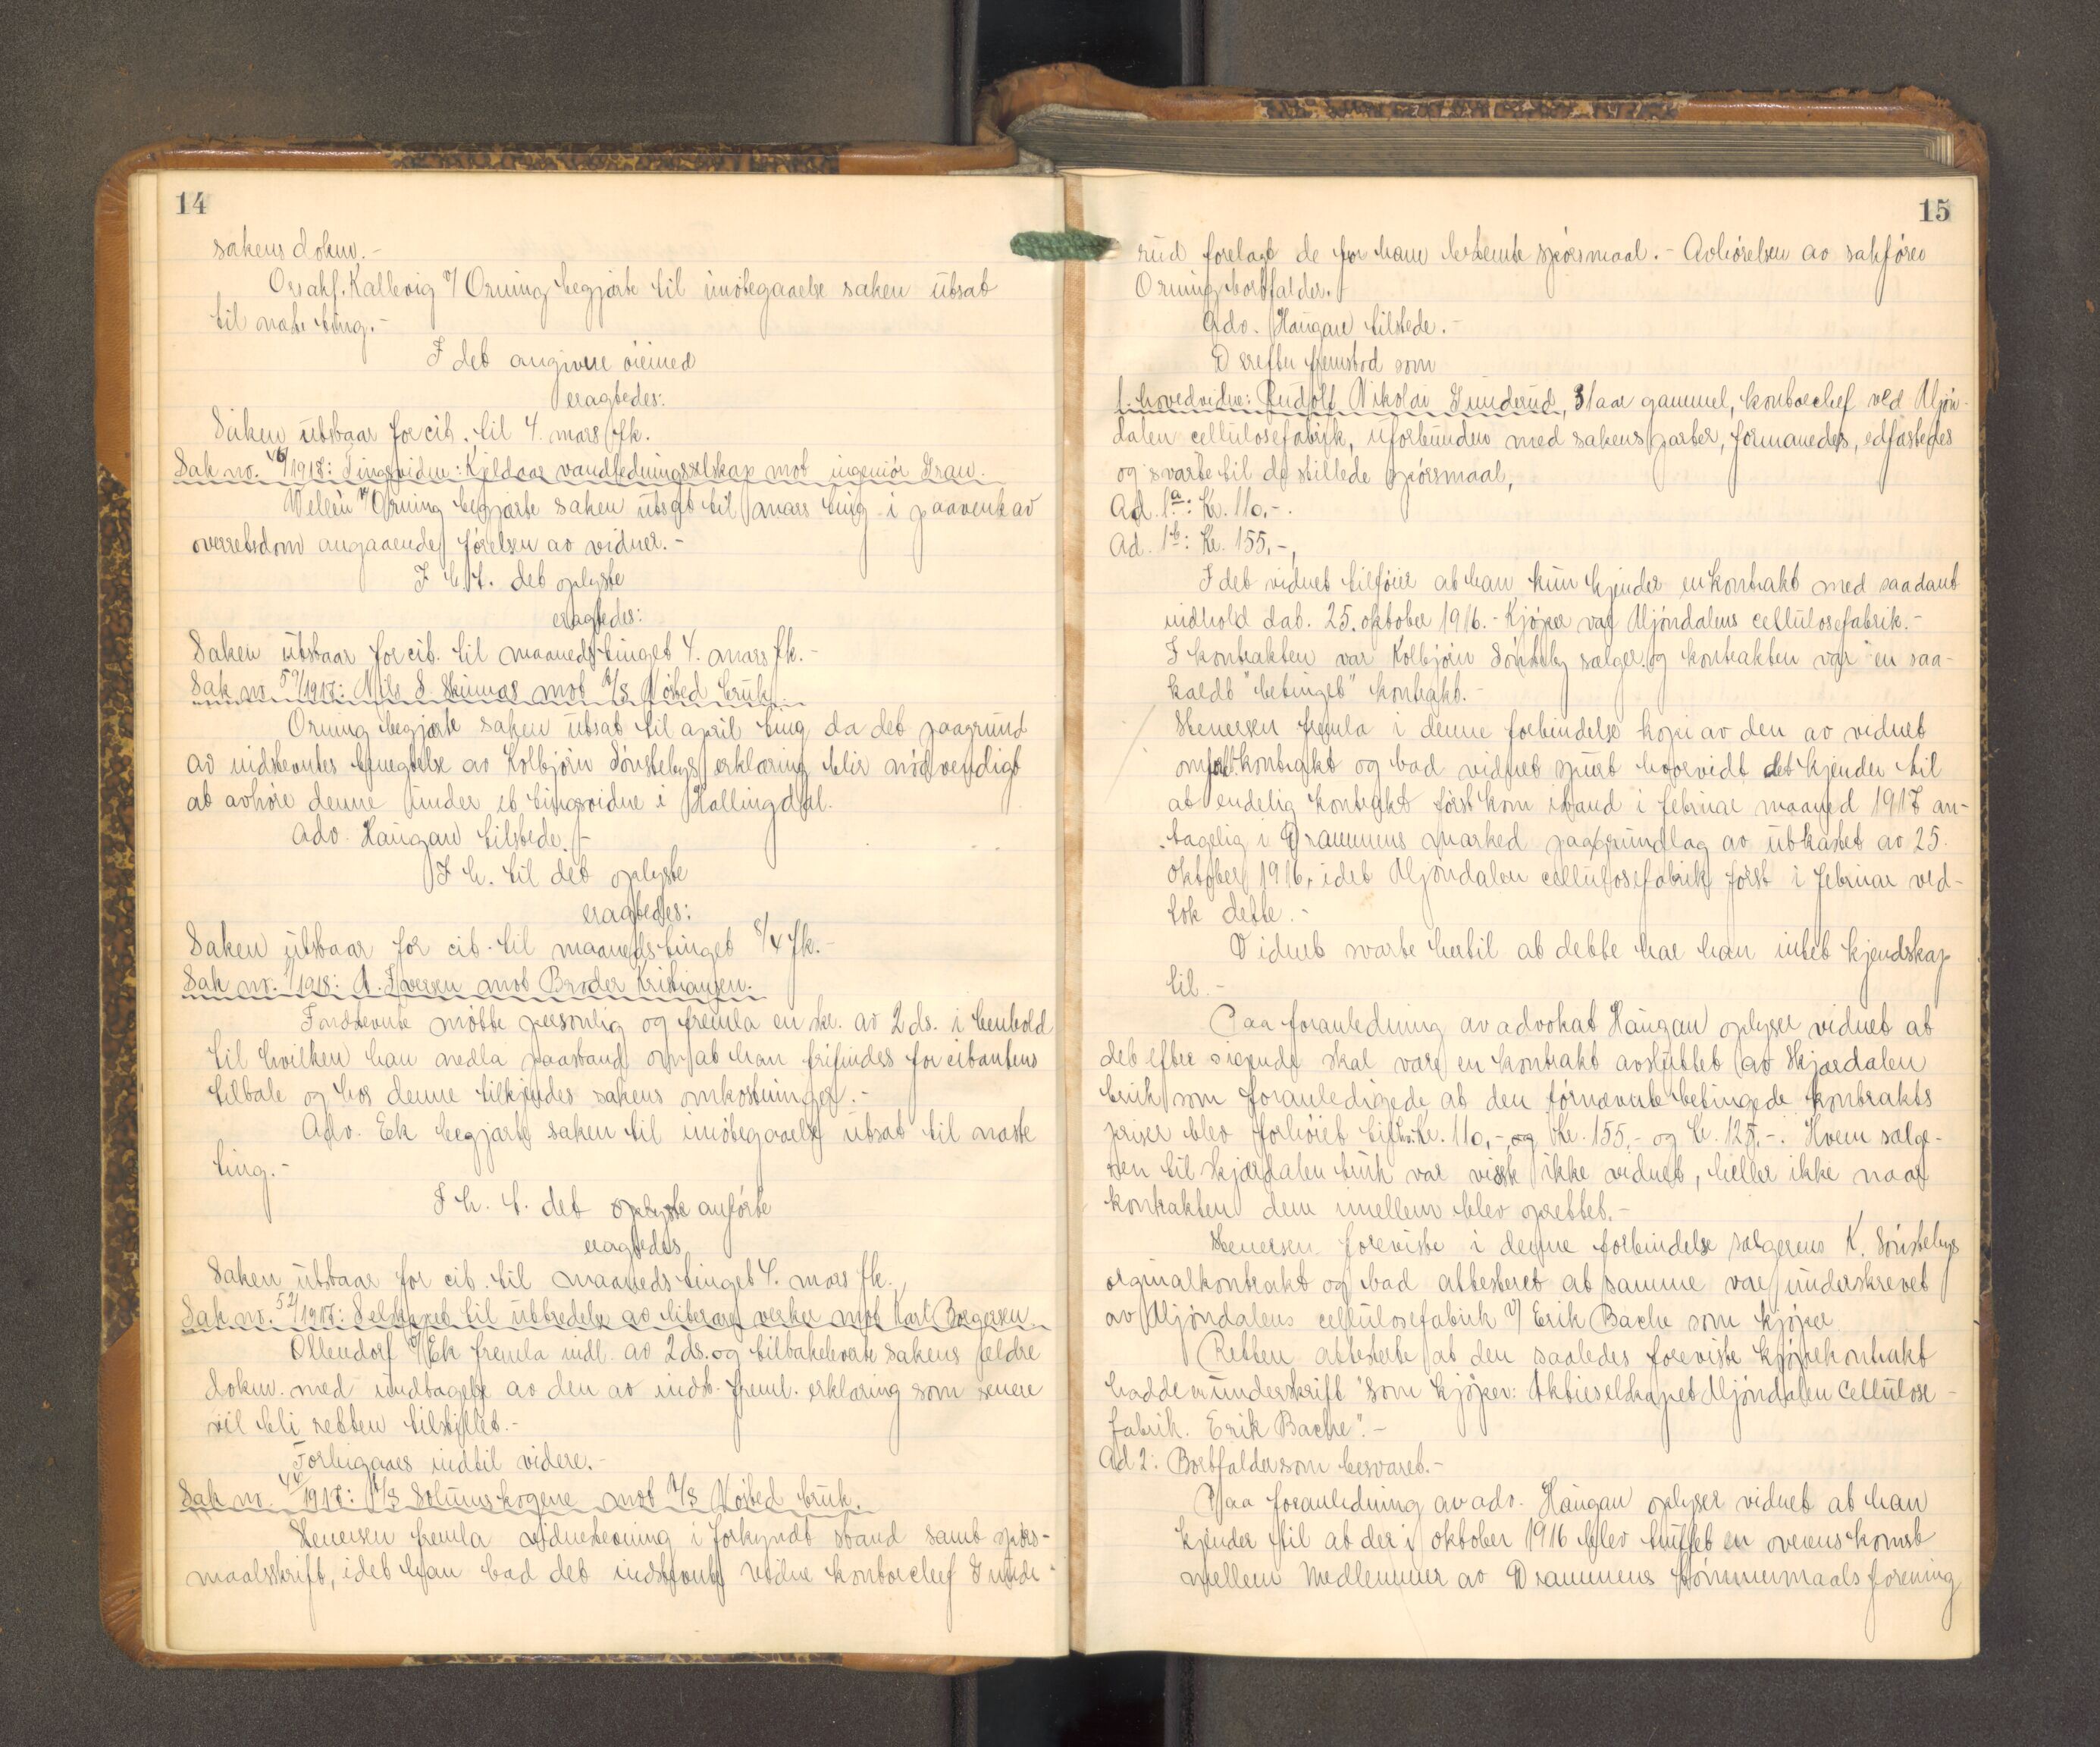 14
sakens dokm.-
Orsakf. Kallevig v/ Orning begjærte til imøtegaaelse saken utsat
til næste ting.-
I det angivne øiemed
eragtedes:
Saken utstaar for cit. til 4. mars fk.
Sak no. 46/1918: Tingsvidne: Kjeldaas vandledningsselskap mot ingeniør Gran.
Wellén v/ Orning begjærte saken utsat til mars ting i paavente av
overretsdom angaaende førelsen av vidner.-
I h. t. det oplyste
eragtedes:
Saken utstaar for cit. til maanedstinget 4. mars fk.-
Sak nr. 59/1917: Nils S. Skinnes mot A/S Nøsted bruk.
Orning begjærte saken utsat til april ting da det paagrund
av indstevntes benegtelse av Kolbjørn Sønstebys erklæring blir nødvendigt
at avhøre denne under et tingsvidne i Hallingdal.
Adv. Haugan tilstede.-
I h. til det oplyste
eragtedes:
Saken utstaar for cit. til maanedstinget 8/4 fk.-
Sak nr. 1/1918: A. Iversen mot Brødr Kristiansen.
Indstevnte møtte personlig og fremla en skr. av 2 ds. i henhold
til hvilken han nedla paastand om at han frifindes for citantens
tiltale og hos denne tilkjendes sakens omkostninger.-
Adv. Ek begjærte saken til imøtegaaelse utsat til næste
ting.-
I h. t. det oplyste anførte
eragtedes
Saken utstaar for cit. til maanedstinget 4. mars fk.
Sak nr. 52/1917: Selskapet til utbredelse av literære verker mot Karl Børgersen.
Ollendorf v/ Ek fremla indl. av 2 ds. og tilbakeleverte sakens ældre
dokm. med undtagelse av den av indst. freml. erklæring som senere
vil bli retten tilstillet.-
Forbigaaes indtil videre.-
Sak nr. 44/1917: A/S Solumskogene mot A/S Nøsted bruk.
Stenersen fremla vidnestevning i forkyndt stand samt spørs-
maalsskrift, idet han bad det indstevnte vidne kontorchef Junde-
15
rud forelagt de for ham bestemte spørsmaal.- Avhørelsen av sakfører
Orning bortfalder.
Adv. Haugan tilstede.-
Derefter fremstod som
1. hovedvidne: Rudolf Nikolai Junderud, 31 aar gammel, kontorchef ved Mjøn-
dalen cellulosefabrik, uforbunden med sakens parter, formanedes, edfæstedes
og svarte til de stillede spørsmaal,
Ad. 1a: Kr. 110,-.
Ad. 1b: Kr. 155,-,
Idet vidnet tilføier at han kun kjender en kontrakt med saadant
indhold dat. 25. oktober 1916.- Kjøper var Mjøndalens cellulosefabrik.-
I kontrakten var Kolbjørn Sønsteby sælger og kontrakten var en saa-
kaldt "betinget" kontrakt.-
Stenersen fremla i denne forbindelse kopi av den av vidnet
omførte kontrakt og bad vidnet spurt hvorvidt det kjender til
at endelig kontrakt først kom istand i februar maaned 1917 an-
tagelig i Drammens marked paa grundlag av utkastet av 25.
oktober 1916, idet Mjøndalen cellulosefabrik først i februar ved-
tok dette.-
Vidnet svarte hertil at dette har han intet kjendskap
til.-
Paa foranledning av advokat Haugan oplyser vidnet at
det efter sigende skal være en kontrakt avsluttet av Skjærdalen
bruk som foranledigede at den førnævnte betingede kontrakts
priser blev forhøiet til kr. 110,- og kr. 155,- og kr. 125,-. Hvem sælge-
ren til Skjærdalen bruk var visste ikke vidnet, heller ikke naar
kontrakten dem imellem blev oprettet.-
Stenersen foreviste i denne forbindelse sælgerens K. Sønstebys
orginalkontrakt og bad attesteret at samme var underskrevet
av Mjøndalens cellulosefabrik v/ Erik Bache som kjøper.
Retten attesterte at den saaledes foreviste kjøpekontrakt
hadde underskrift "Som kjøper: Aktieselskapet Mjøndalen Cellulose-
fabrik. Erik Bache".-
Ad 2: Bortfalder som besvaret.-
Paa foranledning av adv. Haugan oplyser vidnet at han
kjender til at der i oktober 1916 blev truffet en overenskomst
mellem medlemmer av Drammens tømmermaalsforening